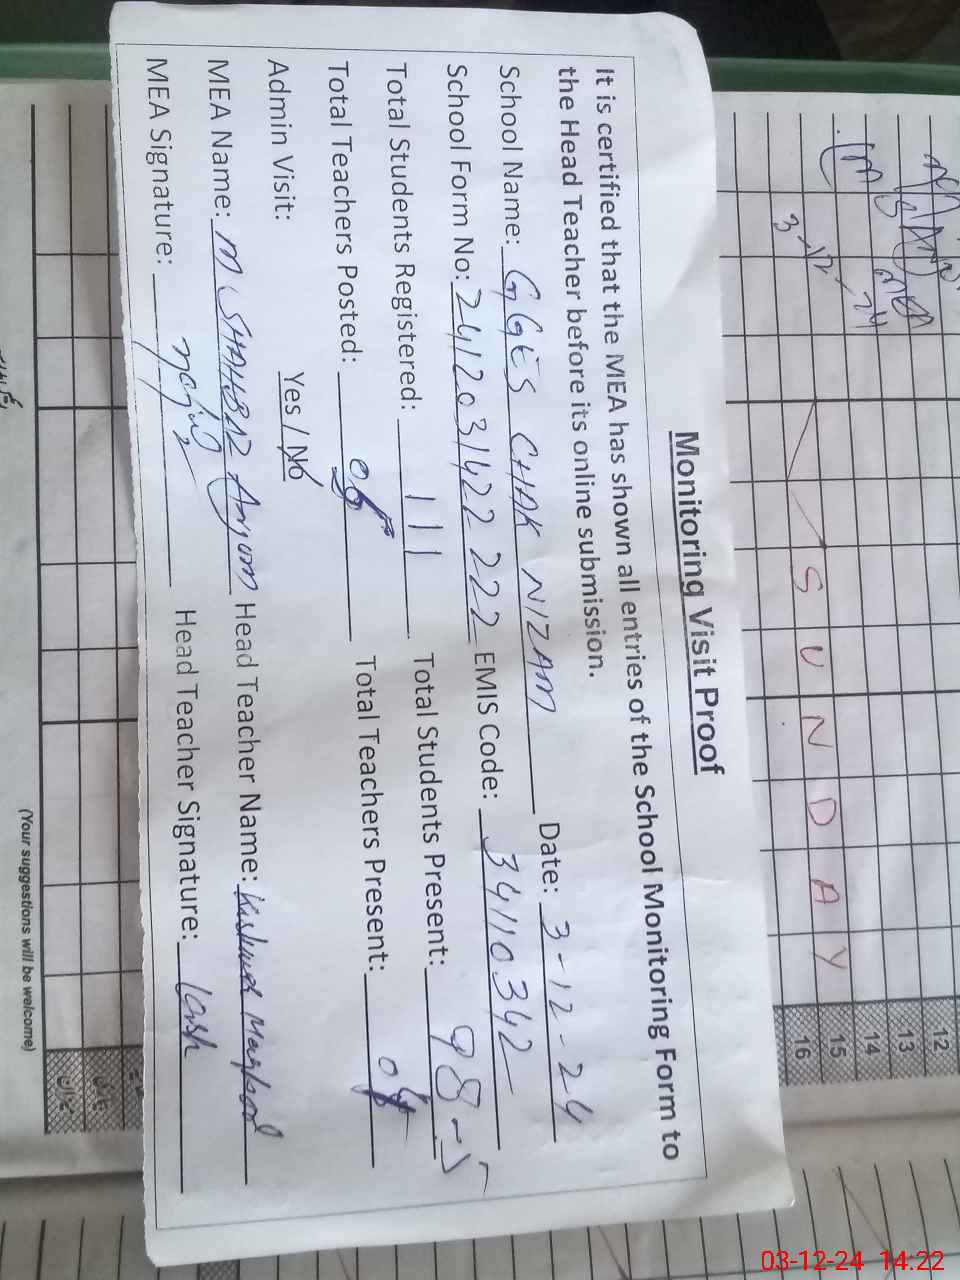 Monitoring Visit Proof
It is certified that the MEA has shown all entries of the School Monitoring Form to
the Head Teacher before its online submission.
School Name: GGES CHAK NIZAM Date: 3-12-24
School Form No: 2412031422 222 EMIS Code: 34110342
Total Students Registered: 111 Total Students Present: 98
Total Teachers Posted: Total Teachers Present:
Admin Visit: Yes / No
MEA Name: M SHAHBAZ Anjum Head Teacher Name:
MEA Signature: Head Teacher Signature:
3-12-24
SUNDAY
12
13
14
15
16
(Your suggestions will be welcome)
03-12-24 14:22